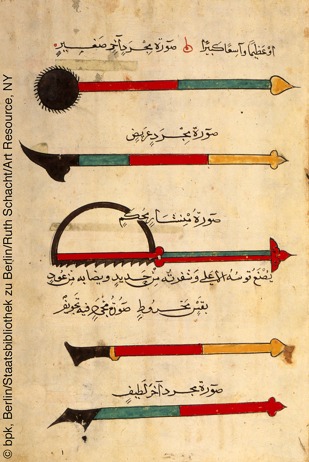 او عظيما واسعا كبيرا صورة مجرد اخر صغير
صورة مجرد عريض
صورة منشار محكم
يصنع قوسه الاعلى وشفرته من حديد ونصابه من عود
بقس مخروط صورة مجرد فيه تجويف
صورة مجرد اخر لطيف
© bpk, Berlin/Staatsbibliothek zu Berlin/Ruth Schacht/Art Resource, NY